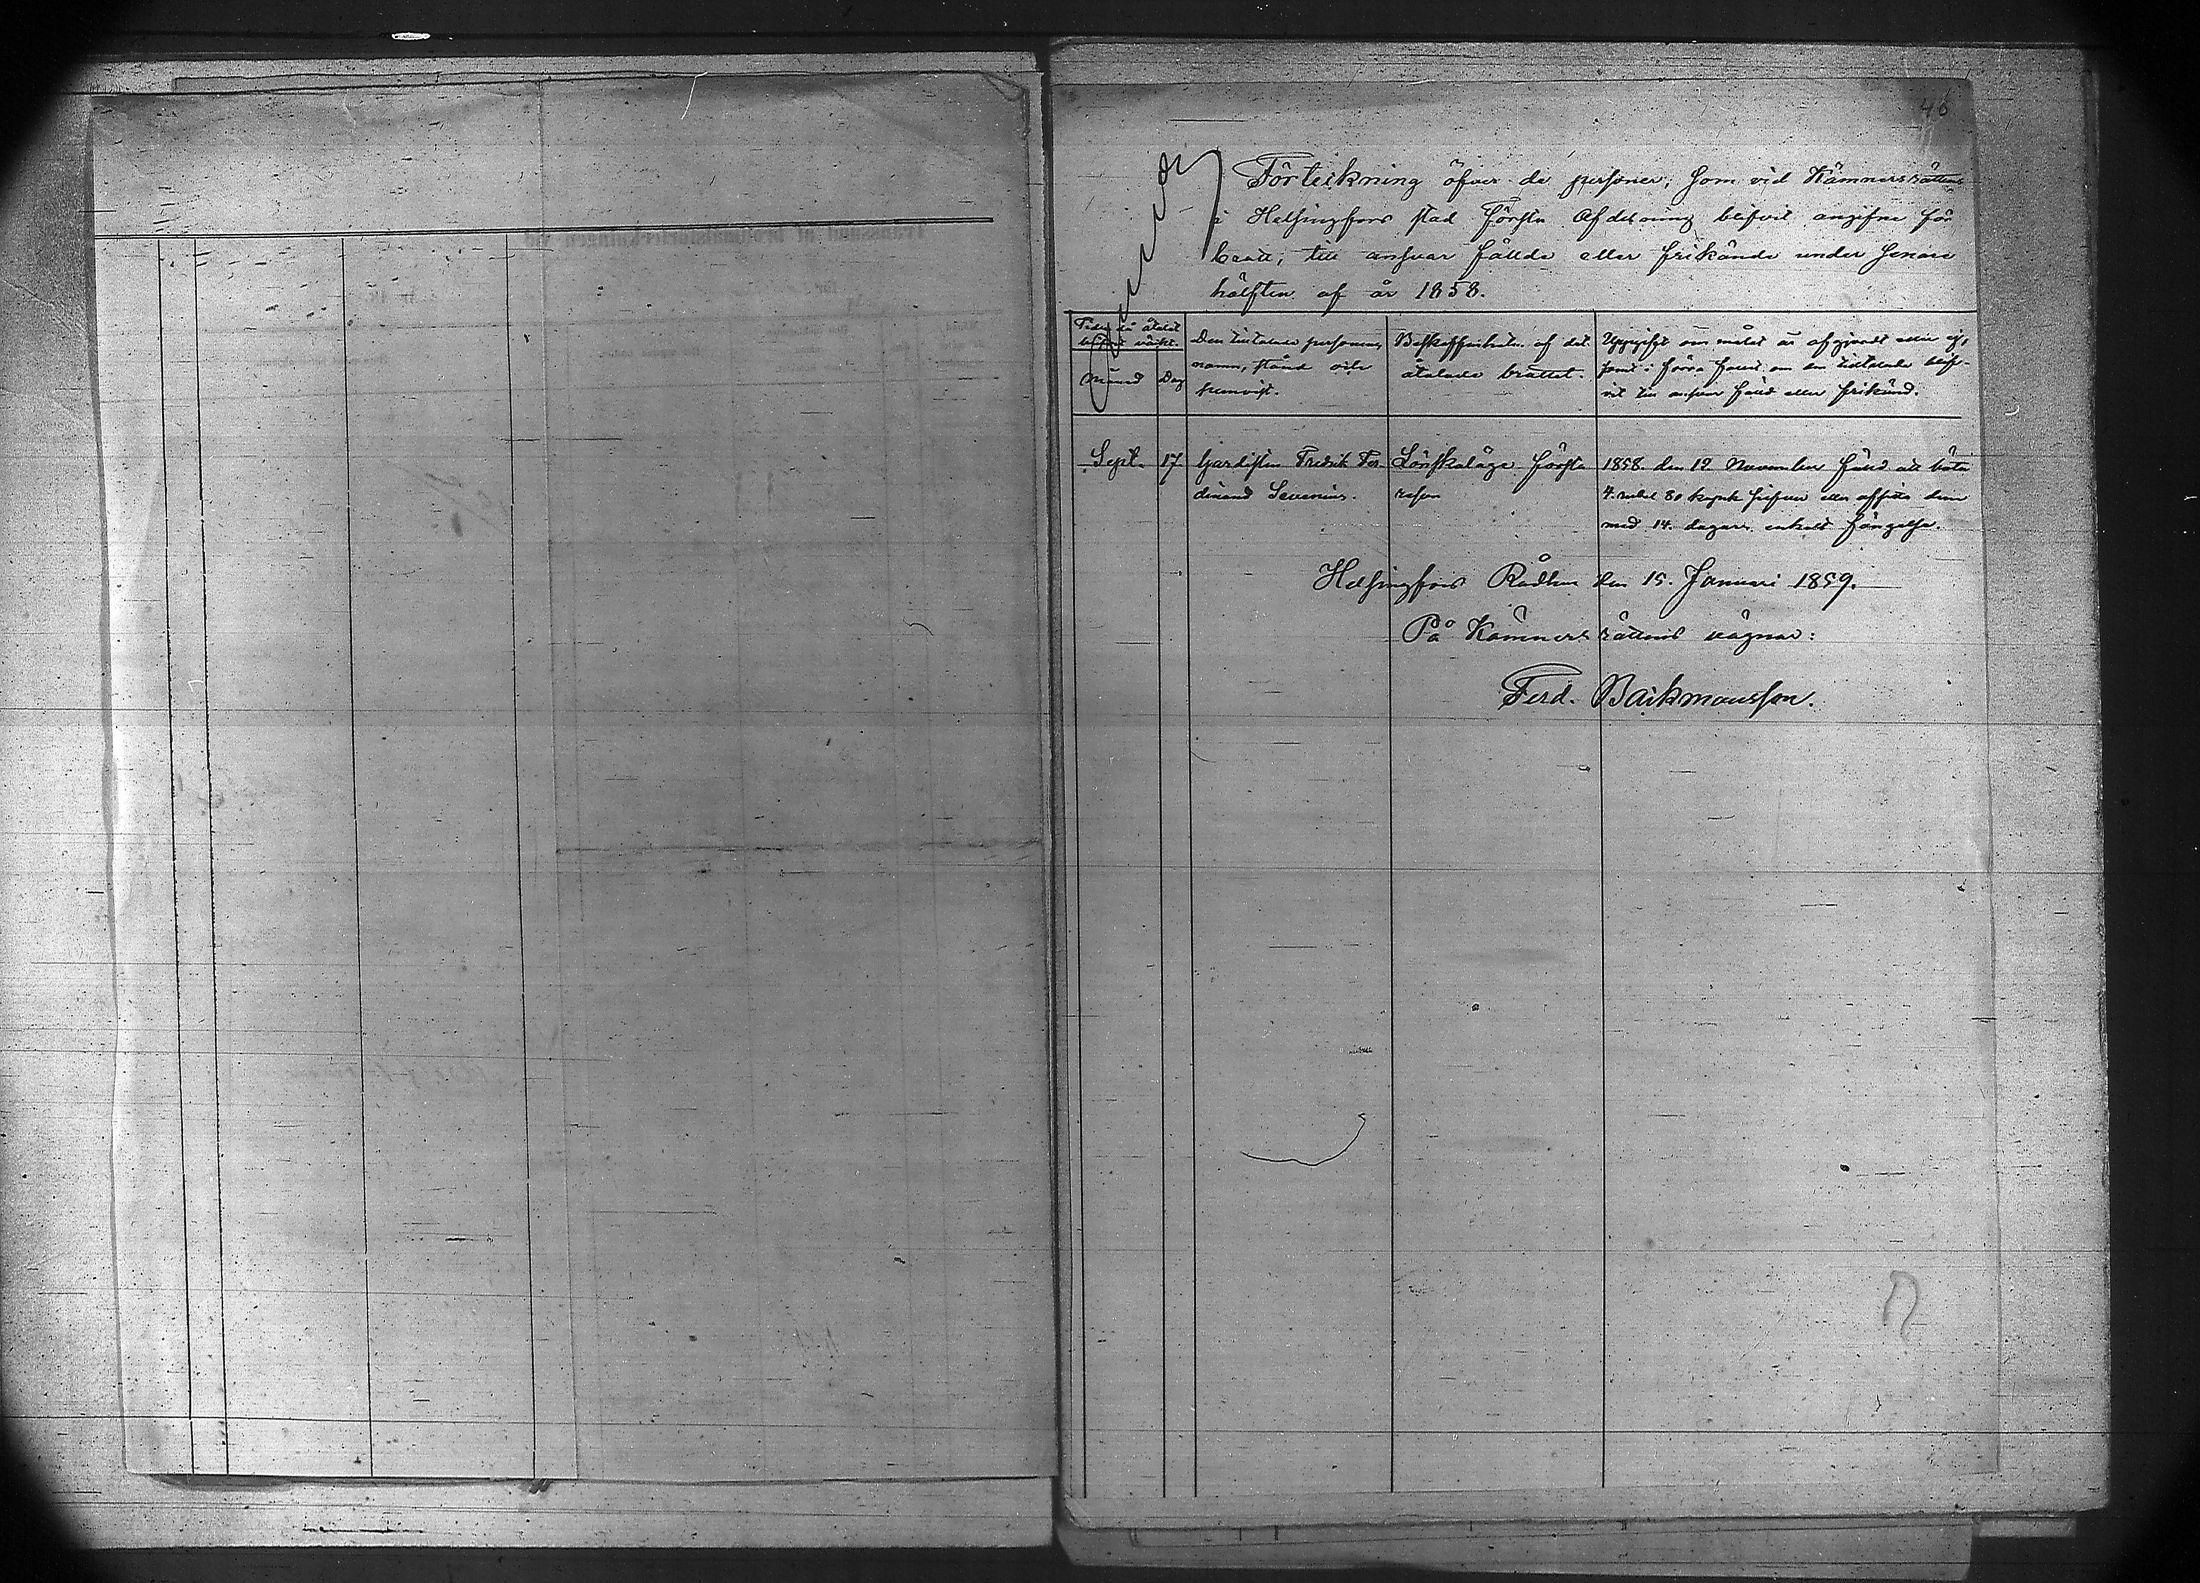 46
Förteckning öfver de personer, som vid Kämnersrättens
i Helsingfors stad Första Afdelning blifvit angifne för
brott, till ansvar fällde eller frikände under senare
hälften af år 1858.
Tiden då åtalet
blifvit väckt.
Månad
Dag
Den tilltalade personens
namn, stånd och
hemvist.
Beskaffenheten af det
åtalade brottet.
Uppgift om målet är afgjordt eller ej,
samt i förra fallet om den tilltalade blif-
vit till ansvar fälld eller frikänd.
Sept. 17
Gardisten Fredrik Fer-
dinand Severius.
Lönskaläge första
resan
1858 den 12 November fälld att böta
4 rubel 80 kopek silfver eller afsitta dem
med 14 dagars enkelt fängelse.
Helsingfors Rådhus den 15. Januari 1859.
På Kämnersrättens vägnar:
Ferd. Backmansson.